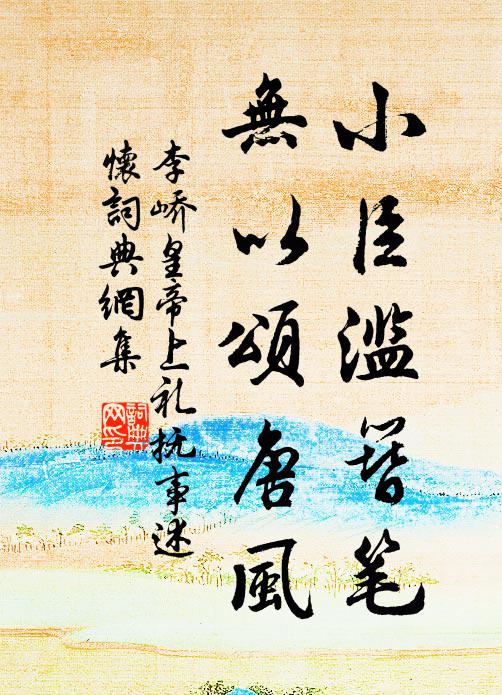 小臣滥簪笔
無以頌唐風
李嶠皇帝上礼抚事述
懷詞典網集
詞典网印